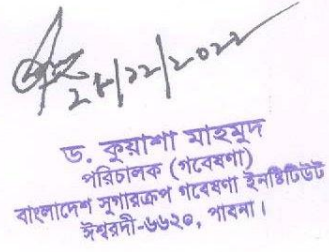 ড. কুয়াশা মাহমুদ
পরিচালক (গবেষণা)
বাংলাদেশ সুগারক্রপ গবেষণা ইনষ্টিটিউট
ঈশ্বরদী-৬৬২০, পাবনা।